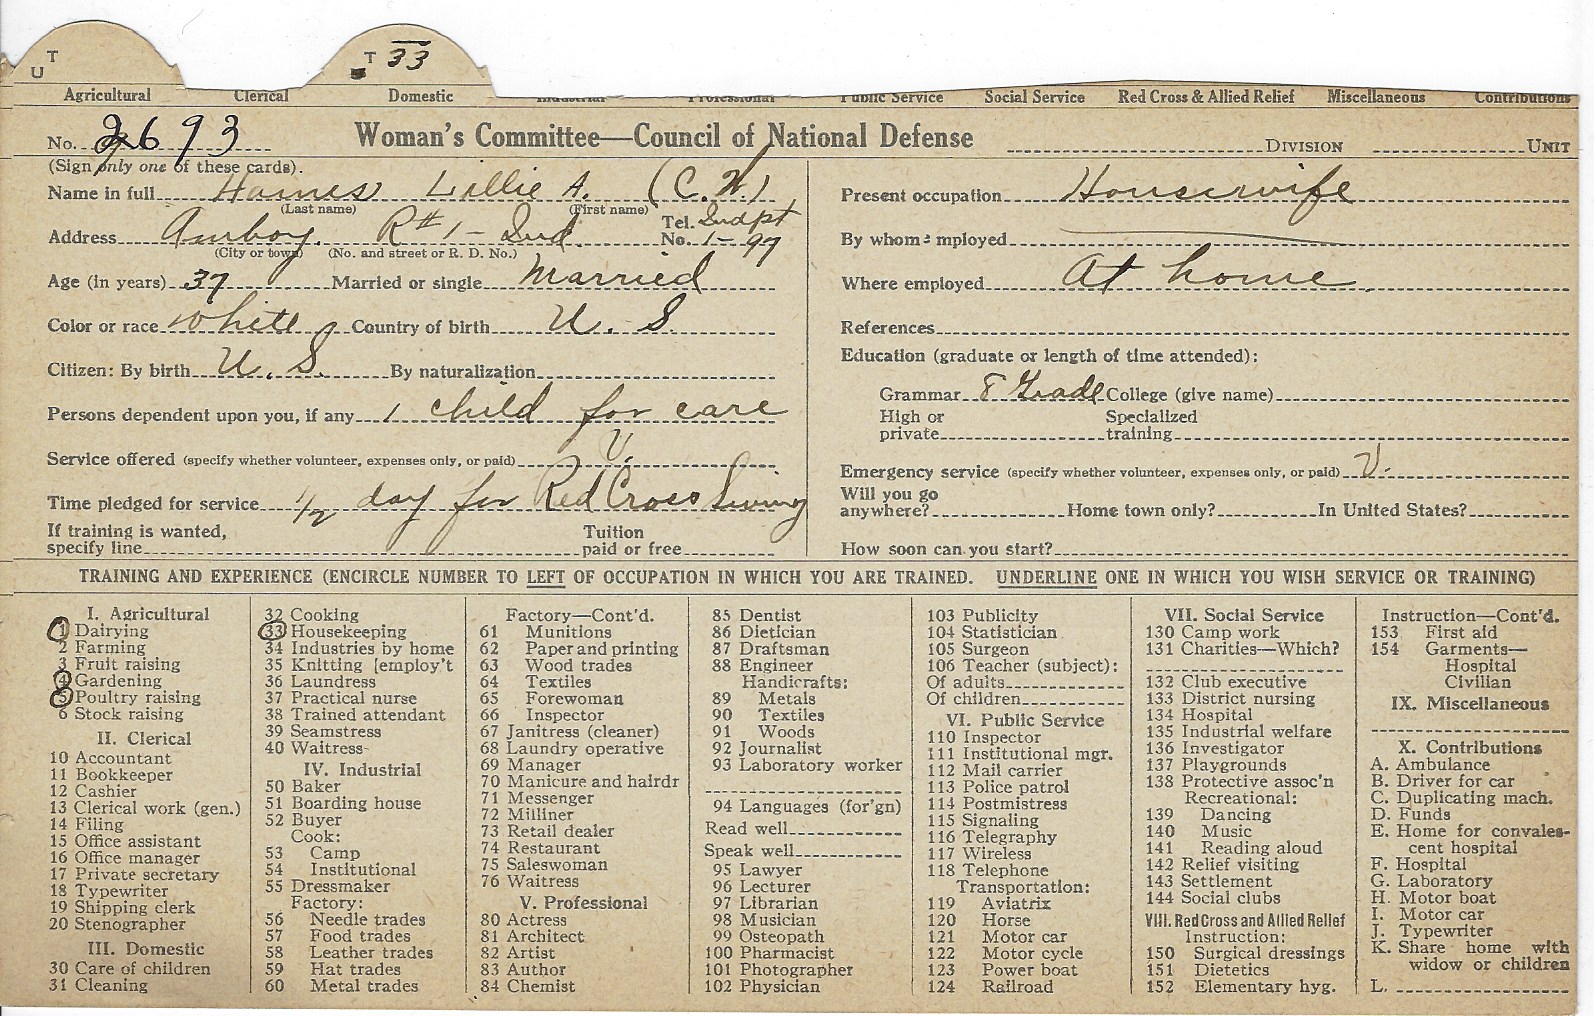 T
U
T 33
Agricultural Clerical Domestic Industrial Professional Public Service Social Service Red Cross & Allied Relief Miscellaneous Contributions
No. 2693 Woman's Committee—Council of National Defense DIVISION UNIT
(Sign only one of these cards).
Name in full Hames Lillie A. (C. W)
(Last name) (First name)
Address Amboy. R#1- Ind. Tel. No. Indpt 1-97
(City or town) (No. and street or R. D. No.)
Age (in years) 37 Married or single Married
Color or race White Country of birth U. S.
Citizen: By birth U. S. By naturalization
Persons dependent upon you, if any 1 child for care
Service offered (specify whether volunteer, expenses only, or paid) V.
Time pledged for service 1/2 day for Red Cross Sewing
If training is wanted, specify line Tuition paid or free
Present occupation Housewife
By whom employed
Where employed At home.
References
Education (graduate or length of time attended):
Grammar 8 Grade College (give name)
High or private Specialized training
Emergency service (specify whether volunteer, expenses only, or paid) V.
Will you go anywhere? Home town only? In United States?
How soon can you start?
TRAINING AND EXPERIENCE (ENCIRCLE NUMBER TO LEFT OF OCCUPATION IN WHICH YOU ARE TRAINED. UNDERLINE ONE IN WHICH YOU WISH SERVICE OR TRAINING)
I. Agricultural
1 Dairying
2 Farming
3 Fruit raising
4 Gardening
5 Poultry raising
6 Stock raising
II. Clerical
10 Accountant
11 Bookkeeper
12 Cashier
13 Clerical work (gen.)
14 Filing
15 Office assistant
16 Office manager
17 Private secretary
18 Typewriter
19 Shipping clerk
20 Stenographer
III. Domestic
30 Care of children
31 Cleaning
32 Cooking
33 Housekeeping
34 Industries by home
35 Knitting [employ't
36 Laundress
37 Practical nurse
38 Trained attendant
39 Seamstress
40 Waitress
IV. Industrial
50 Baker
51 Boarding house
52 Buyer
Cook:
53 Camp
54 Institutional
55 Dressmaker
Factory:
56 Needle trades
57 Food trades
58 Leather trades
59 Hat trades
60 Metal trades
Factory—Cont'd.
61 Munitions
62 Paper and printing
63 Wood trades
64 Textiles
65 Forewoman
66 Inspector
67 Janitress (cleaner)
68 Laundry operative
69 Manager
70 Manicure and hairdr
71 Messenger
72 Milliner
73 Retail dealer
74 Restaurant
75 Saleswoman
76 Waitress
V. Professional
80 Actress
81 Architect
82 Artist
83 Author
84 Chemist
85 Dentist
86 Dietician
87 Draftsman
88 Engineer
Handicrafts:
89 Metals
90 Textiles
91 Woods
92 Journalist
93 Laboratory worker
94 Languages (for'gn)
Read well
Speak well
95 Lawyer
96 Lecturer
97 Librarian
98 Musician
99 Osteopath
100 Pharmacist
101 Photographer
102 Physician
103 Publicity
104 Statistician
105 Surgeon
106 Teacher (subject):
Of adults
Of children
VI. Public Service
110 Inspector
111 Institutional mgr.
112 Mail carrier
113 Police patrol
114 Postmistress
115 Signaling
116 Telegraphy
117 Wireless
118 Telephone
Transportation:
119 Aviatrix
120 Horse
121 Motor car
122 Motor cycle
123 Power boat
124 Railroad
VII. Social Service
130 Camp work
131 Charities—Which?
132 Club executive
133 District nursing
134 Hospital
135 Industrial welfare
136 Investigator
137 Playgrounds
138 Protective assoc'n
Recreational:
139 Dancing
140 Music
141 Reading aloud
142 Relief visiting
143 Settlement
144 Social clubs
VIII. Red Cross and Allied Relief
Instruction:
150 Surgical dressings
151 Dietetics
152 Elementary hyg.
Instruction—Cont'd.
153 First aid
154 Garments—
Hospital
Civilian
IX. Miscellaneous
X. Contributions
A. Ambulance
B. Driver for car
C. Duplicating mach.
D. Funds
E. Home for convales-
cent hospital
F. Hospital
G. Laboratory
H. Motor boat
I. Motor car
J. Typewriter
K. Share home with
widow or children
L.